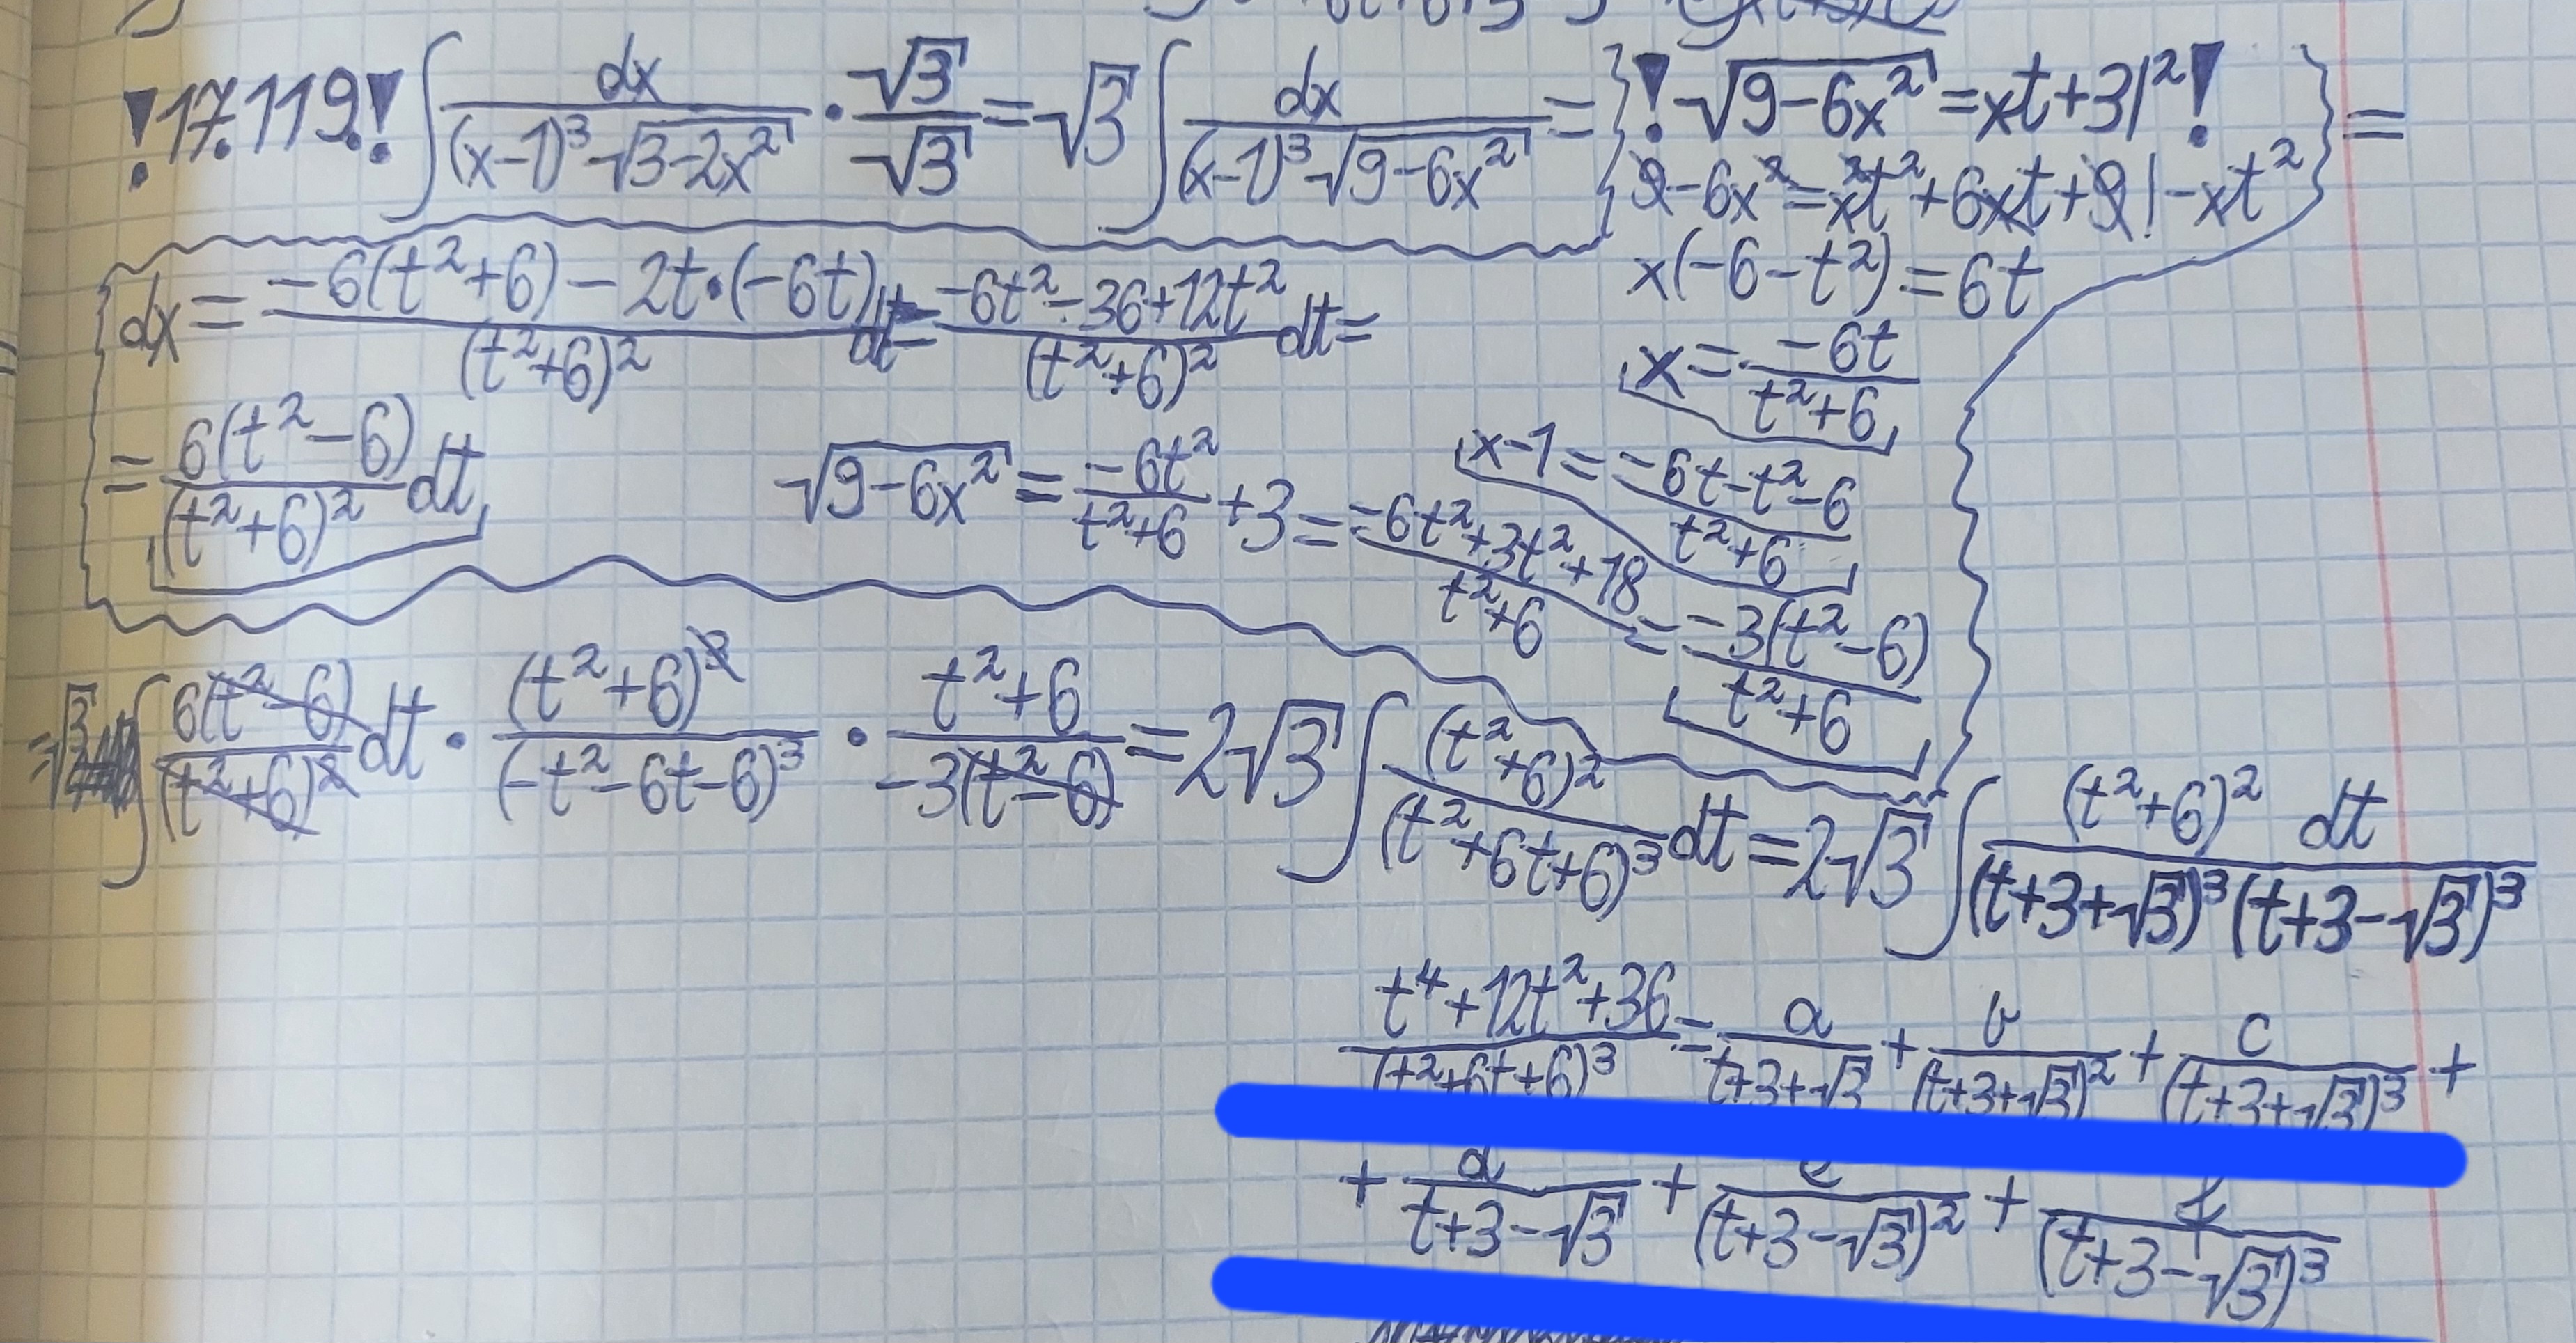 !17.119.! ∫ dx/((x-1)³√(3-2x²)) · √3/√3 = √3 ∫ dx/((x-1)³√(9-6x²)) = { ! √(9-6x²) = xt+3 |² ! } =
9-6x² = x²t²+6xt+9 | -xt²
x(-6-t²) = 6t
x = -6t/(t²+6)
dx = (-6(t²+6) - 2t·(-6t))/(t²+6)² dt = (-6t²-36+12t²)/(t²+6)² dt =
= 6(t²-6)/(t²+6)² dt
x-1 = (-6t-t²-6)/(t²+6)
√(9-6x²) = -6t²/(t²+6) + 3 = (-6t²+3t²+18)/(t²+6) = -3(t²-6)/(t²+6)
= √3 ∫ 6(t²-6)/(t²+6)² dt · (t²+6)³/(-t²-6t-6)³ · (t²+6)/(-3(t²-6)) = 2√3 ∫ (t²+6)²/(t²+6t+6)³ dt = 2√3 ∫ (t²+6)² dt/((t+3+√3)³(t+3-√3)³)
(t⁴+12t²+36)/(t²+6t+6)³ = a/(t+3+√3) + b/(t+3+√3)² + c/(t+3+√3)³ +
+ d/(t+3-√3) + e/(t+3-√3)² + f/(t+3-√3)³